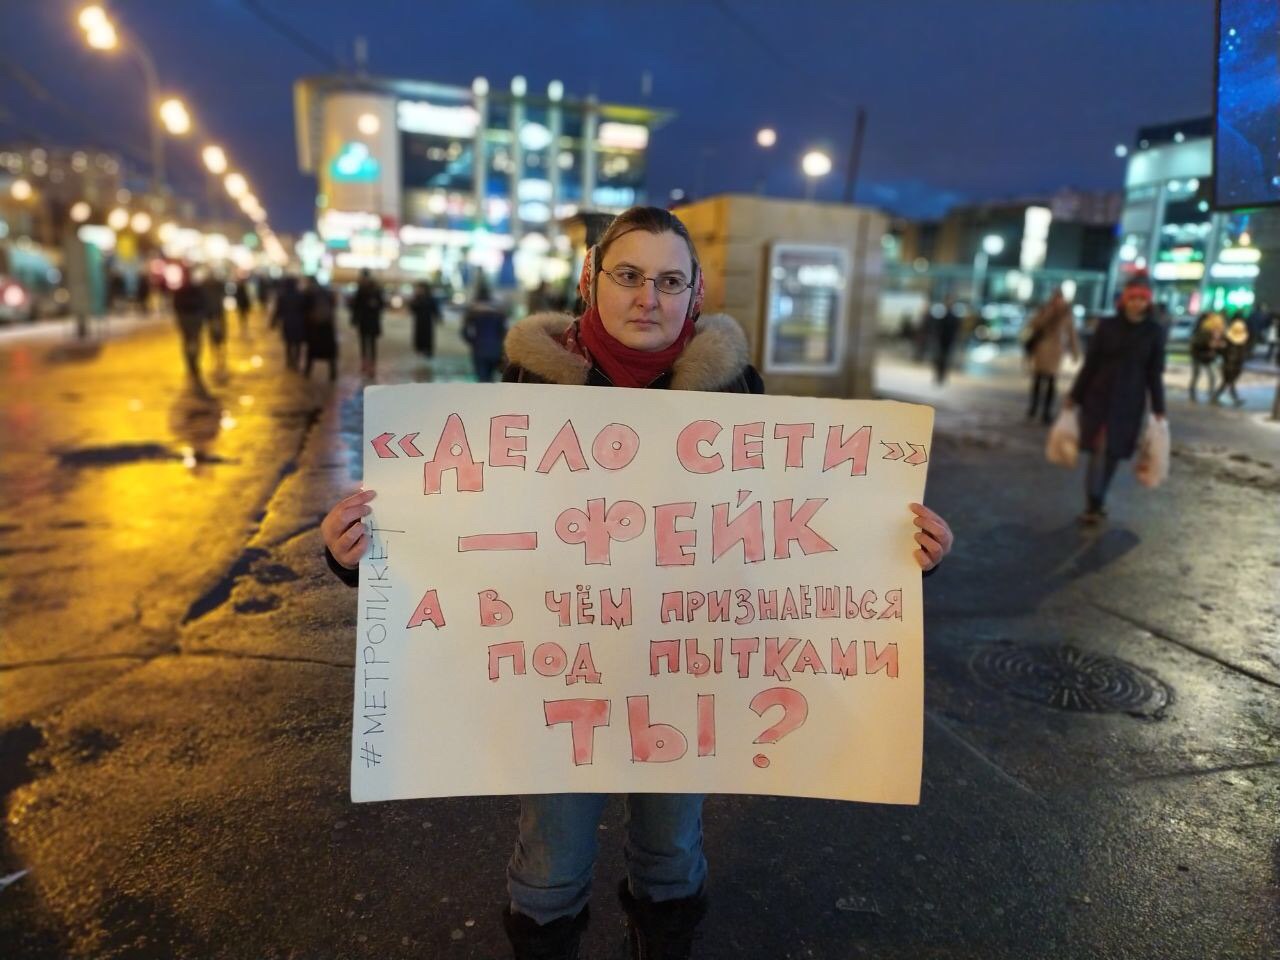 «ДЕЛО СЕТИ»
— ФЕЙК
А В ЧЁМ ПРИЗНАЕШЬСЯ
ПОД ПЫТКАМИ
ТЫ?
#МЕТРОПИКЕТ